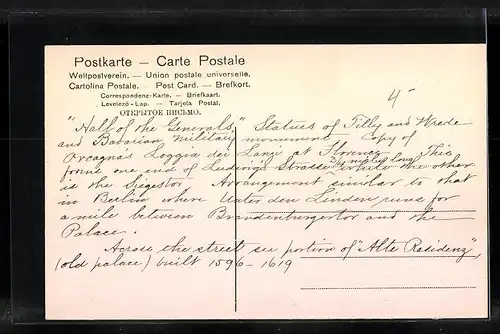 Postkarte — Carte Postale
Weltpostverein. — Union postale universelle.
Cartolina Postale. — Post Card. — Brefkort.
Correspondenz-Karte. — Briefkaart.
Levelező-Lap. — Tarjeta Postal.
ОТКРЫТОЕ ПИСЬМО.
4
"Hall of the Generals," Statues of Tilly and Wrede
and Bavarian Military monument Copy of
Orcagnas Loggia dei Lanzi at Florence This
forms one end of Ludwigs Strasse 3/4 mile long while the other
is the Siegestor Arrangement similar to that
in Berlin where Unter den Linden runs for
a mile between Brandenburgertor and the
Palace.
Across the street see portion of "Alte Residenz",
(old palace) built 1596-1619